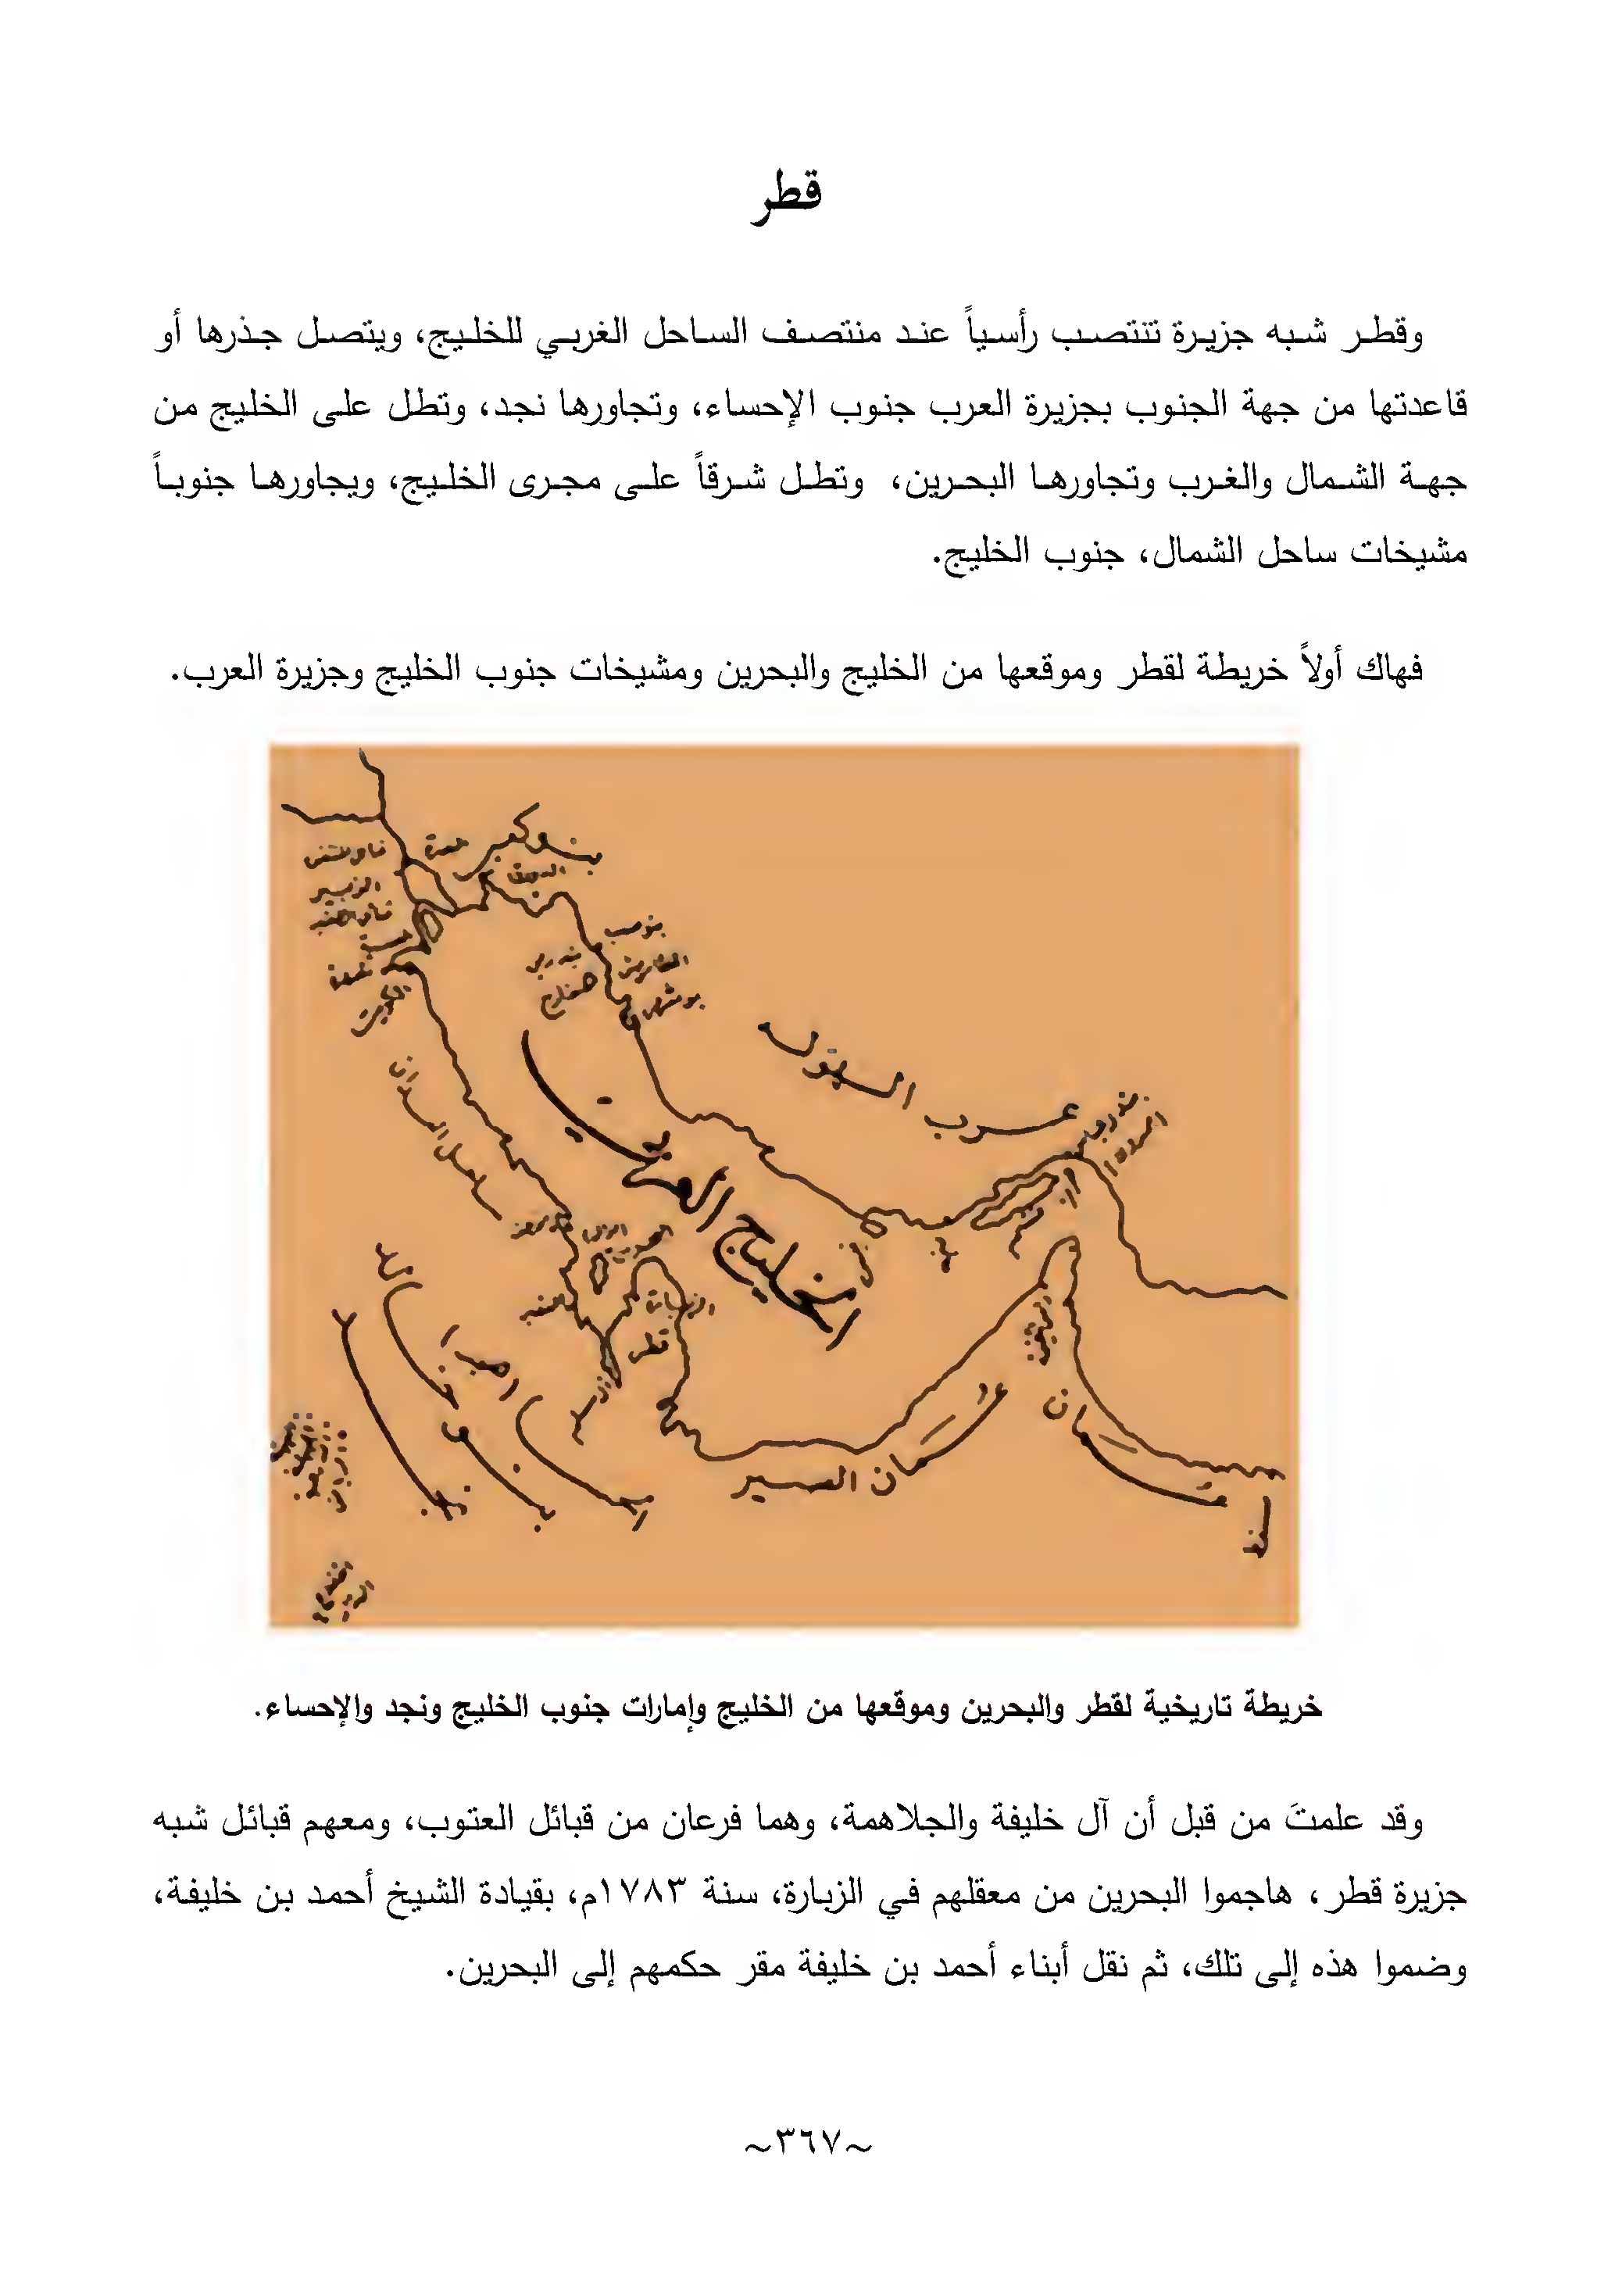 قطر
وقطر شبه جزيرة تنتصب رأسياً عند منتصف الساحل الغربي للخليج، ويتصل جذرها أو
قاعدتها من جهة الجنوب بجزيرة العرب جنوب الإحساء، وتجاورها نجد، وتطل على الخليج من
جهة الشمال والغرب وتجاورها البحرين، وتطل شرقاً على مجرى الخليج، ويجاورها جنوباً
مشيخات ساحل الشمال، جنوب الخليج.
فهاك أولاً خريطة لقطر وموقعها من الخليج والبحرين ومشيخات جنوب الخليج وجزيرة العرب.
بنو كعب
الزبير
الكويت
بوشهر
عرب
الخليج العربي
قطر
عُمان الصير
عُمان
خريطة تاريخية لقطر والبحرين وموقعها من الخليج وإمارات جنوب الخليج ونجد والإحساء.
وقد علمتَ من قبل أن آل خليفة والجلاهمة، وهما فرعان من قبائل العتوب، ومعهم قبائل شبه
جزيرة قطر، هاجموا البحرين من معقلهم في الزبارة، سنة ١٧٨٣م، بقيادة الشيخ أحمد بن خليفة،
وضموا هذه إلى تلك، ثم نقل أبناء أحمد بن خليفة مقر حكمهم إلى البحرين.
~٣٦٧~